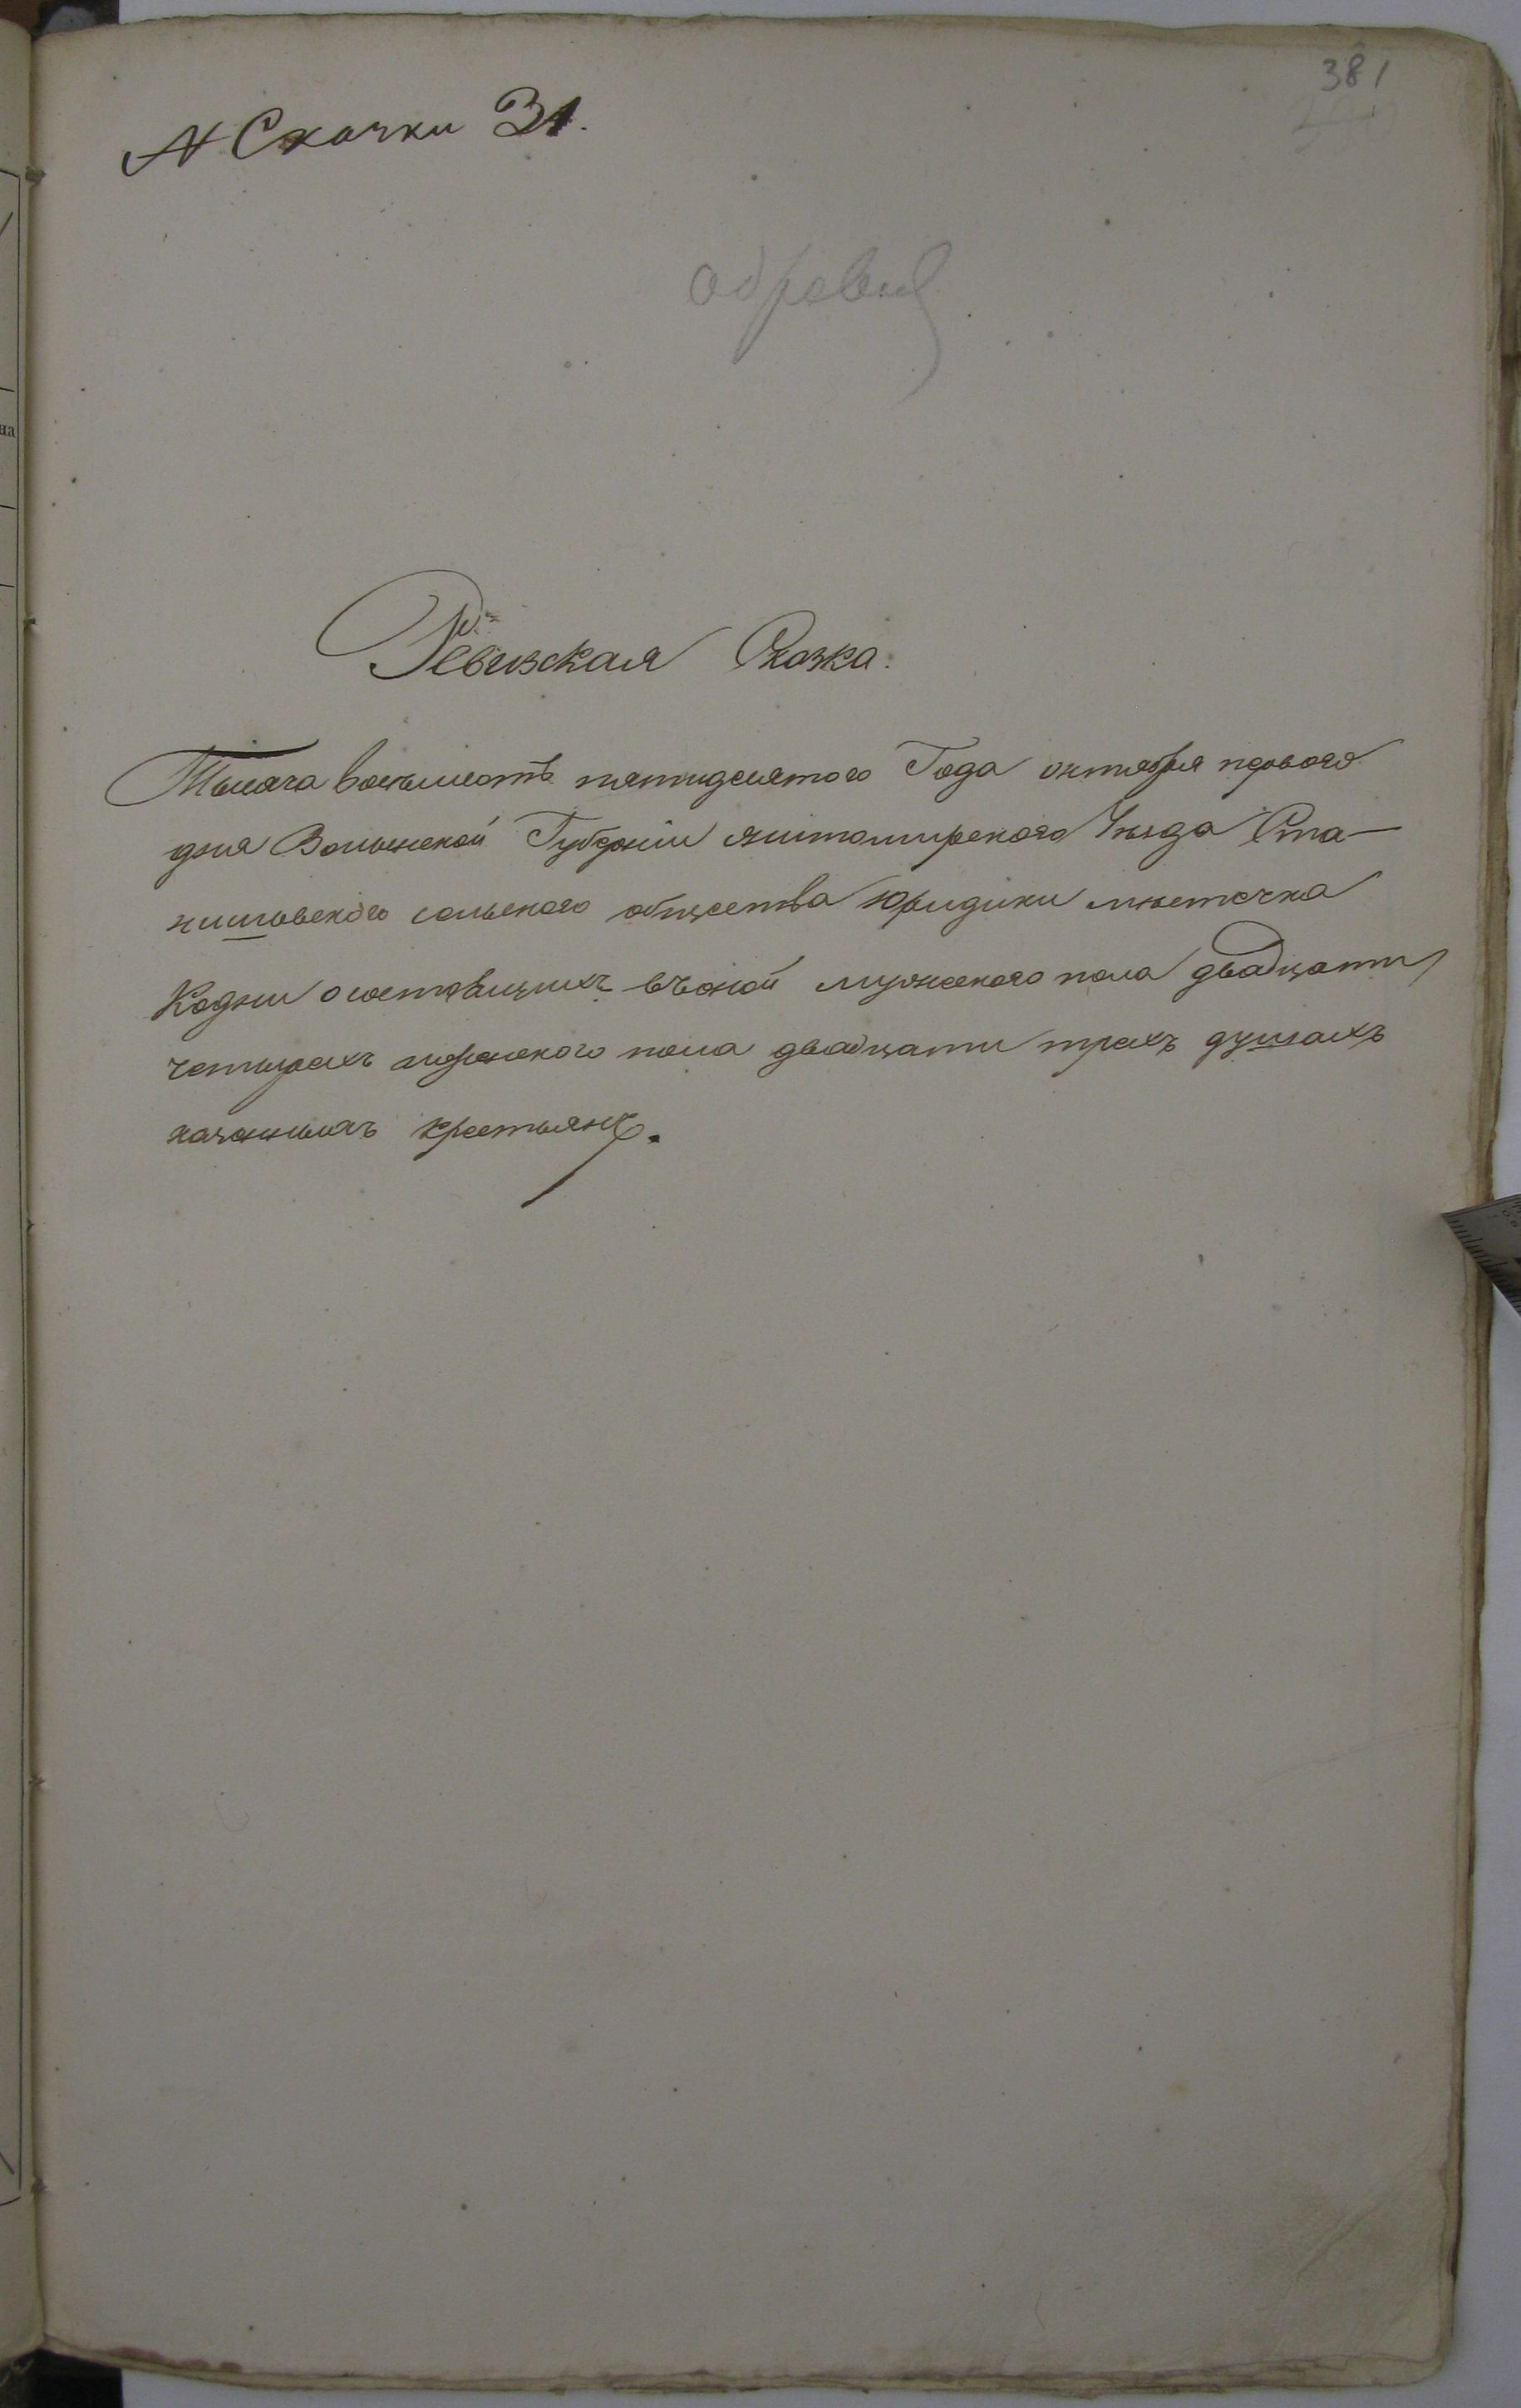 381
№ Скачки 31.
Ревизская Сказка.
Тысяча восемьсотъ пятидесятого Года октября первого
дня Волынской Губернiи Житомирского Уѣзда Ста-
нишовского сельского общества юридики мѣстечка
Кодни о состоящихъ въ оной мужеского пола двадцати
четырехъ женского пола двадцати трехъ душахъ
казенныхъ крестьянъ.
на